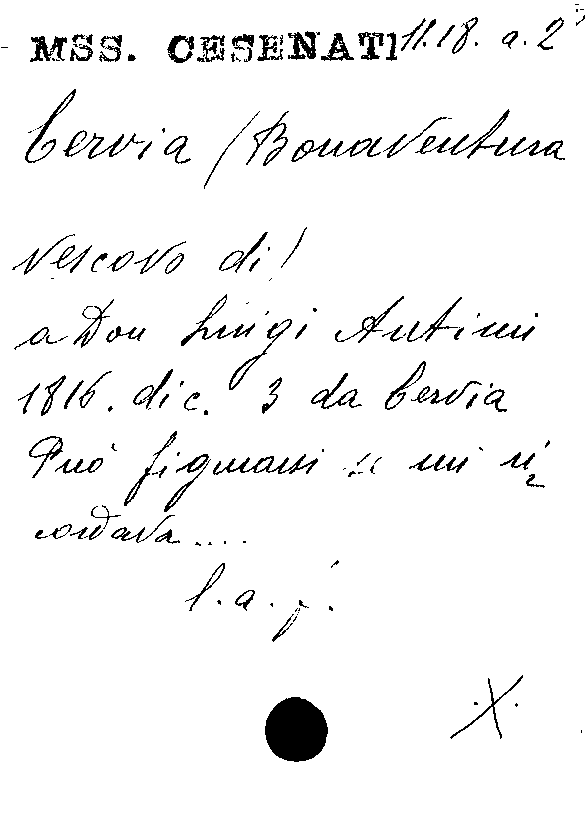 MSS. CESENATI 11.18. a. 2
Cervia (Bonaventura
vescovo di)
a Don Luigi Antimi
1816. dic. 3 da Cervia
Può figurarsi se mi ri=
cordava....
l. a. f.
.X.